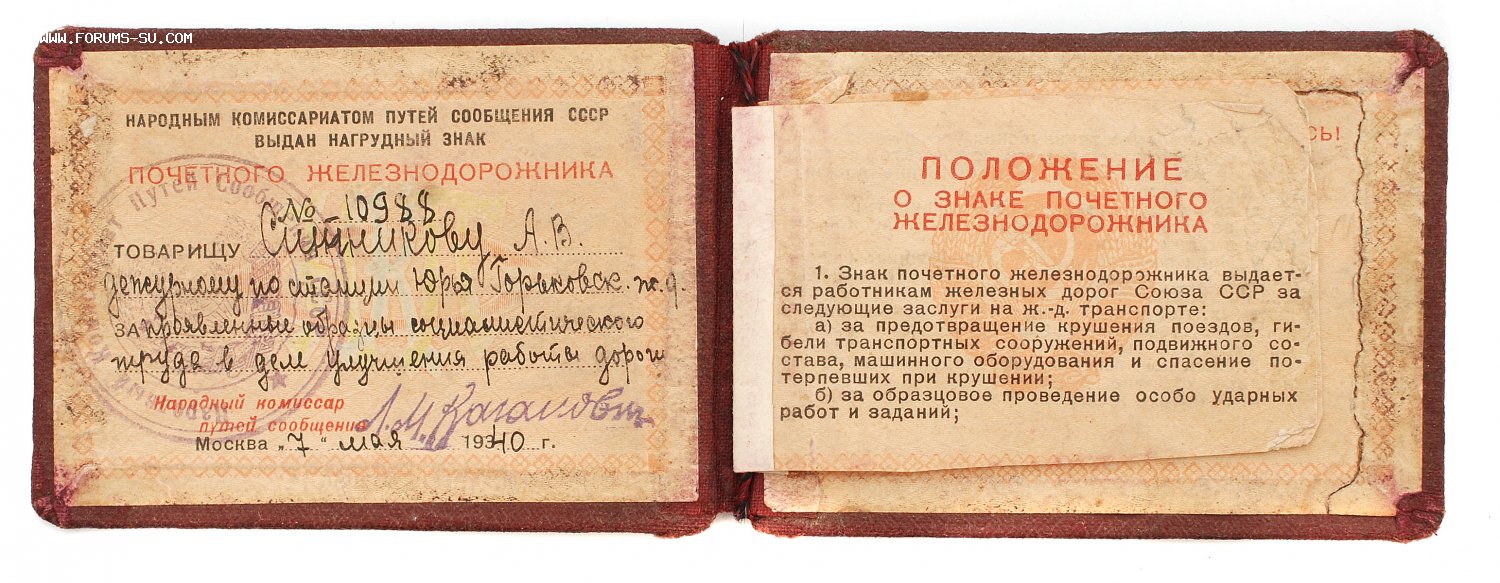 WWW.FORUMS-SU.COM
НАРОДНЫМ КОМИССАРИАТОМ ПУТЕЙ СООБЩЕНИЯ СССР
ВЫДАН НАГРУДНЫЙ ЗНАК
ПОЧЕТНОГО ЖЕЛЕЗНОДОРОЖНИКА
№-10988
ТОВАРИЩУ Синникову А.В.
дежурному по станции Юрья Горьковск. ж.д.
ЗА проявленные образцы социалистического
труда в деле улучшения работы дороги
Народный комиссар
путей сообщения Л.М.Каганович
Москва „7" мая 1940 г.
СЬ!
ПОЛОЖЕНИЕ
О ЗНАКЕ ПОЧЕТНОГО
ЖЕЛЕЗНОДОРОЖНИКА
1. Знак почетного железнодорожника выдает-
ся работникам железных дорог Союза ССР за
следующие заслуги на ж.-д. транспорте:
а) за предотвращение крушения поездов, ги-
бели транспортных сооружений, подвижного со-
става, машинного оборудования и спасение по-
терпевших при крушении;
б) за образцовое проведение особо ударных
работ и заданий;